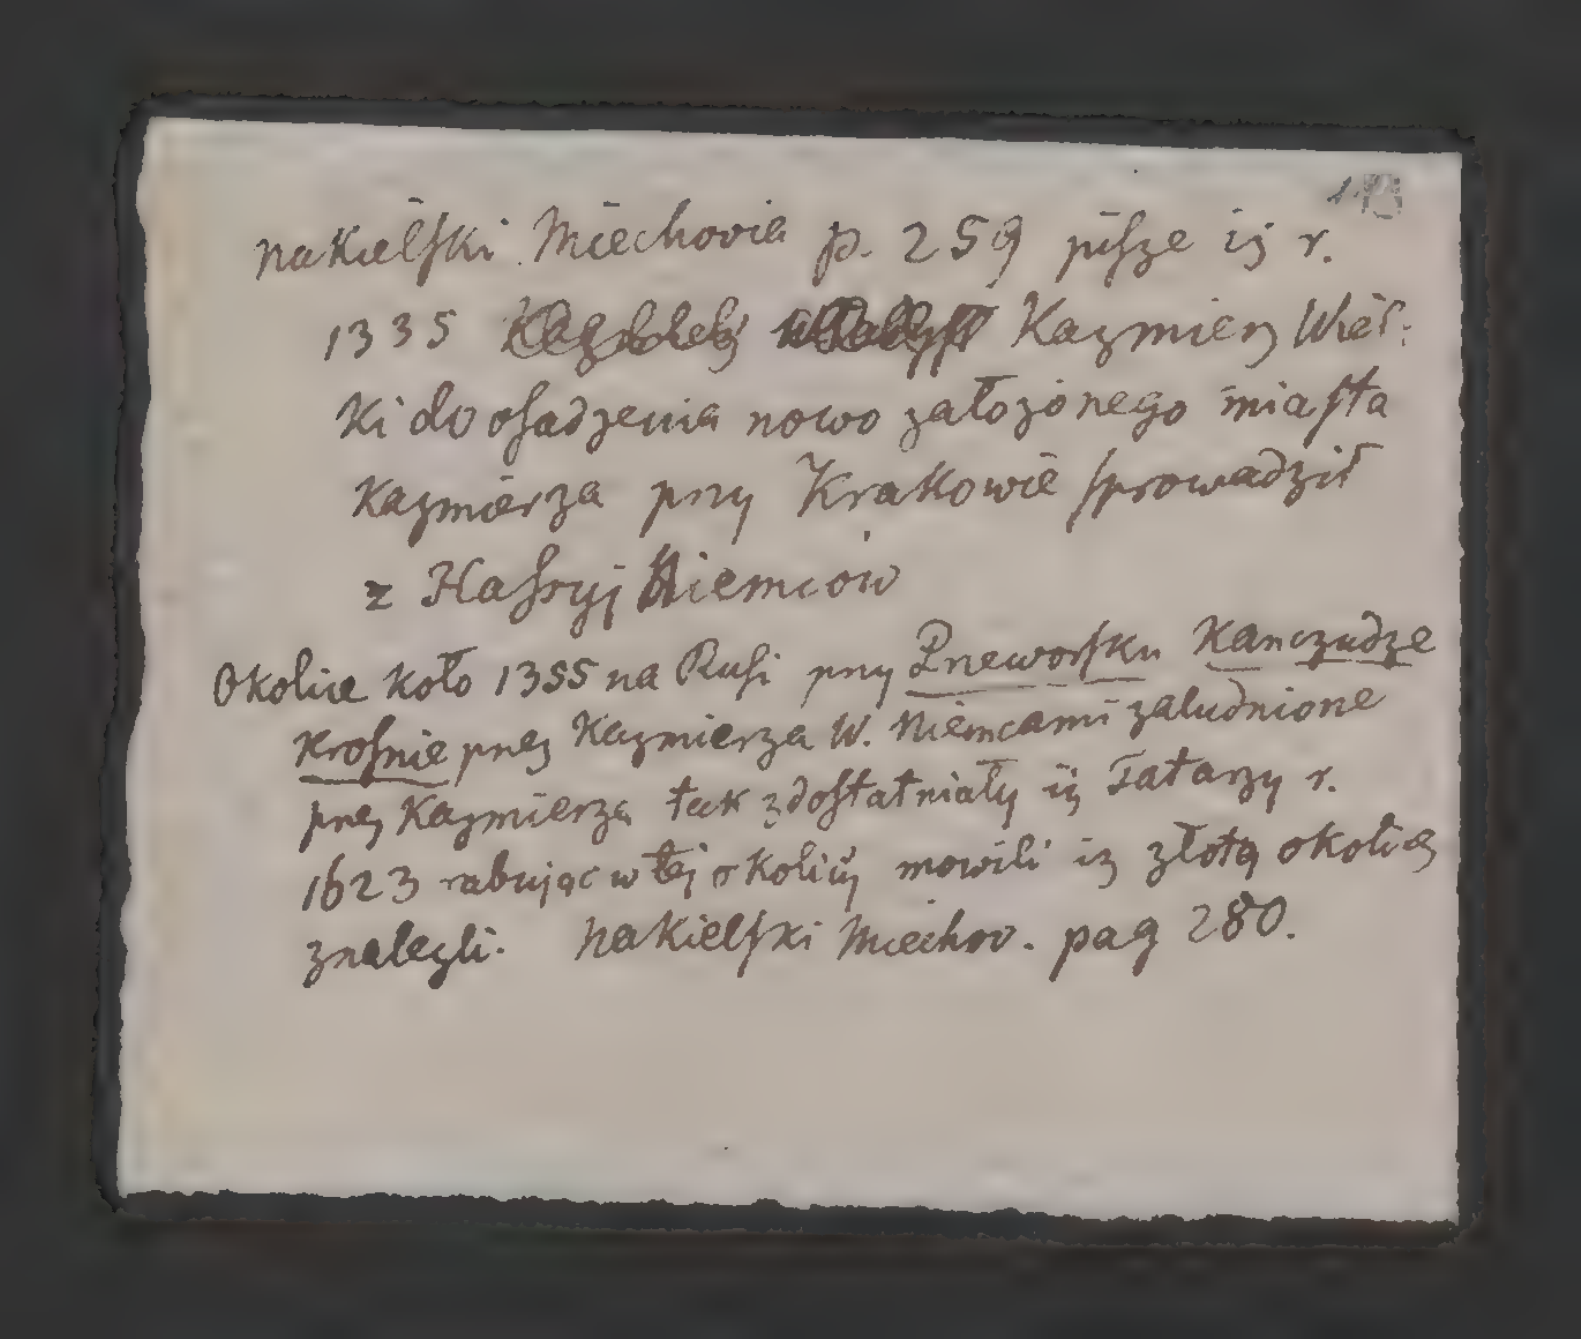 Nakielſki Miechovia p. 259 piſze iż r.
1335 Kazmierz Wiel:
ki do oſadzenia nowo założonego miaſta
Kazmierza przy Krakowie ſprowadził
z Haſsyj Niemców
Okolice koło 1355 na Ruſi przy Przeworſku Kanczudze
Kroſnie przez Kazmierza W. Niemcami zaludnione
przez Kazmierza tak zdoſtatniały iż Tatarzy r.
1623 rabując w tej okolicy mowili iż złotą okolicę
znalezli. Nakielſki Miechov. pag 280.